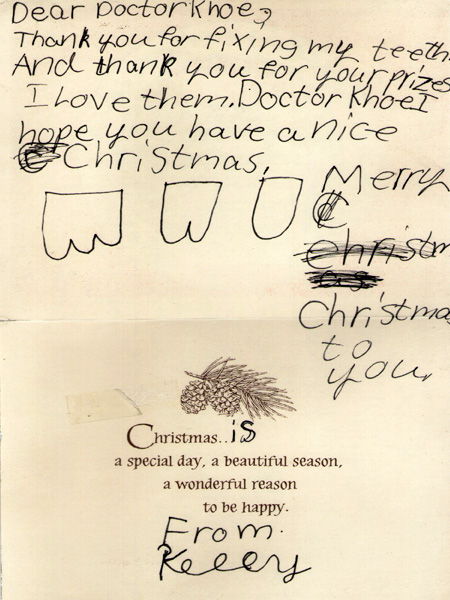 Dear Doctor Khoe,
Thank you for fixing my teeth.
And thank you for your prizes
I Love them. Doctor Khoe I
hope you have a nice
Christmas.
Merry
C
Christm
as
Christmas
to
you.
Christmas.. is
a special day, a beautiful season,
a wonderful reason
to be happy.
From.
Kelly